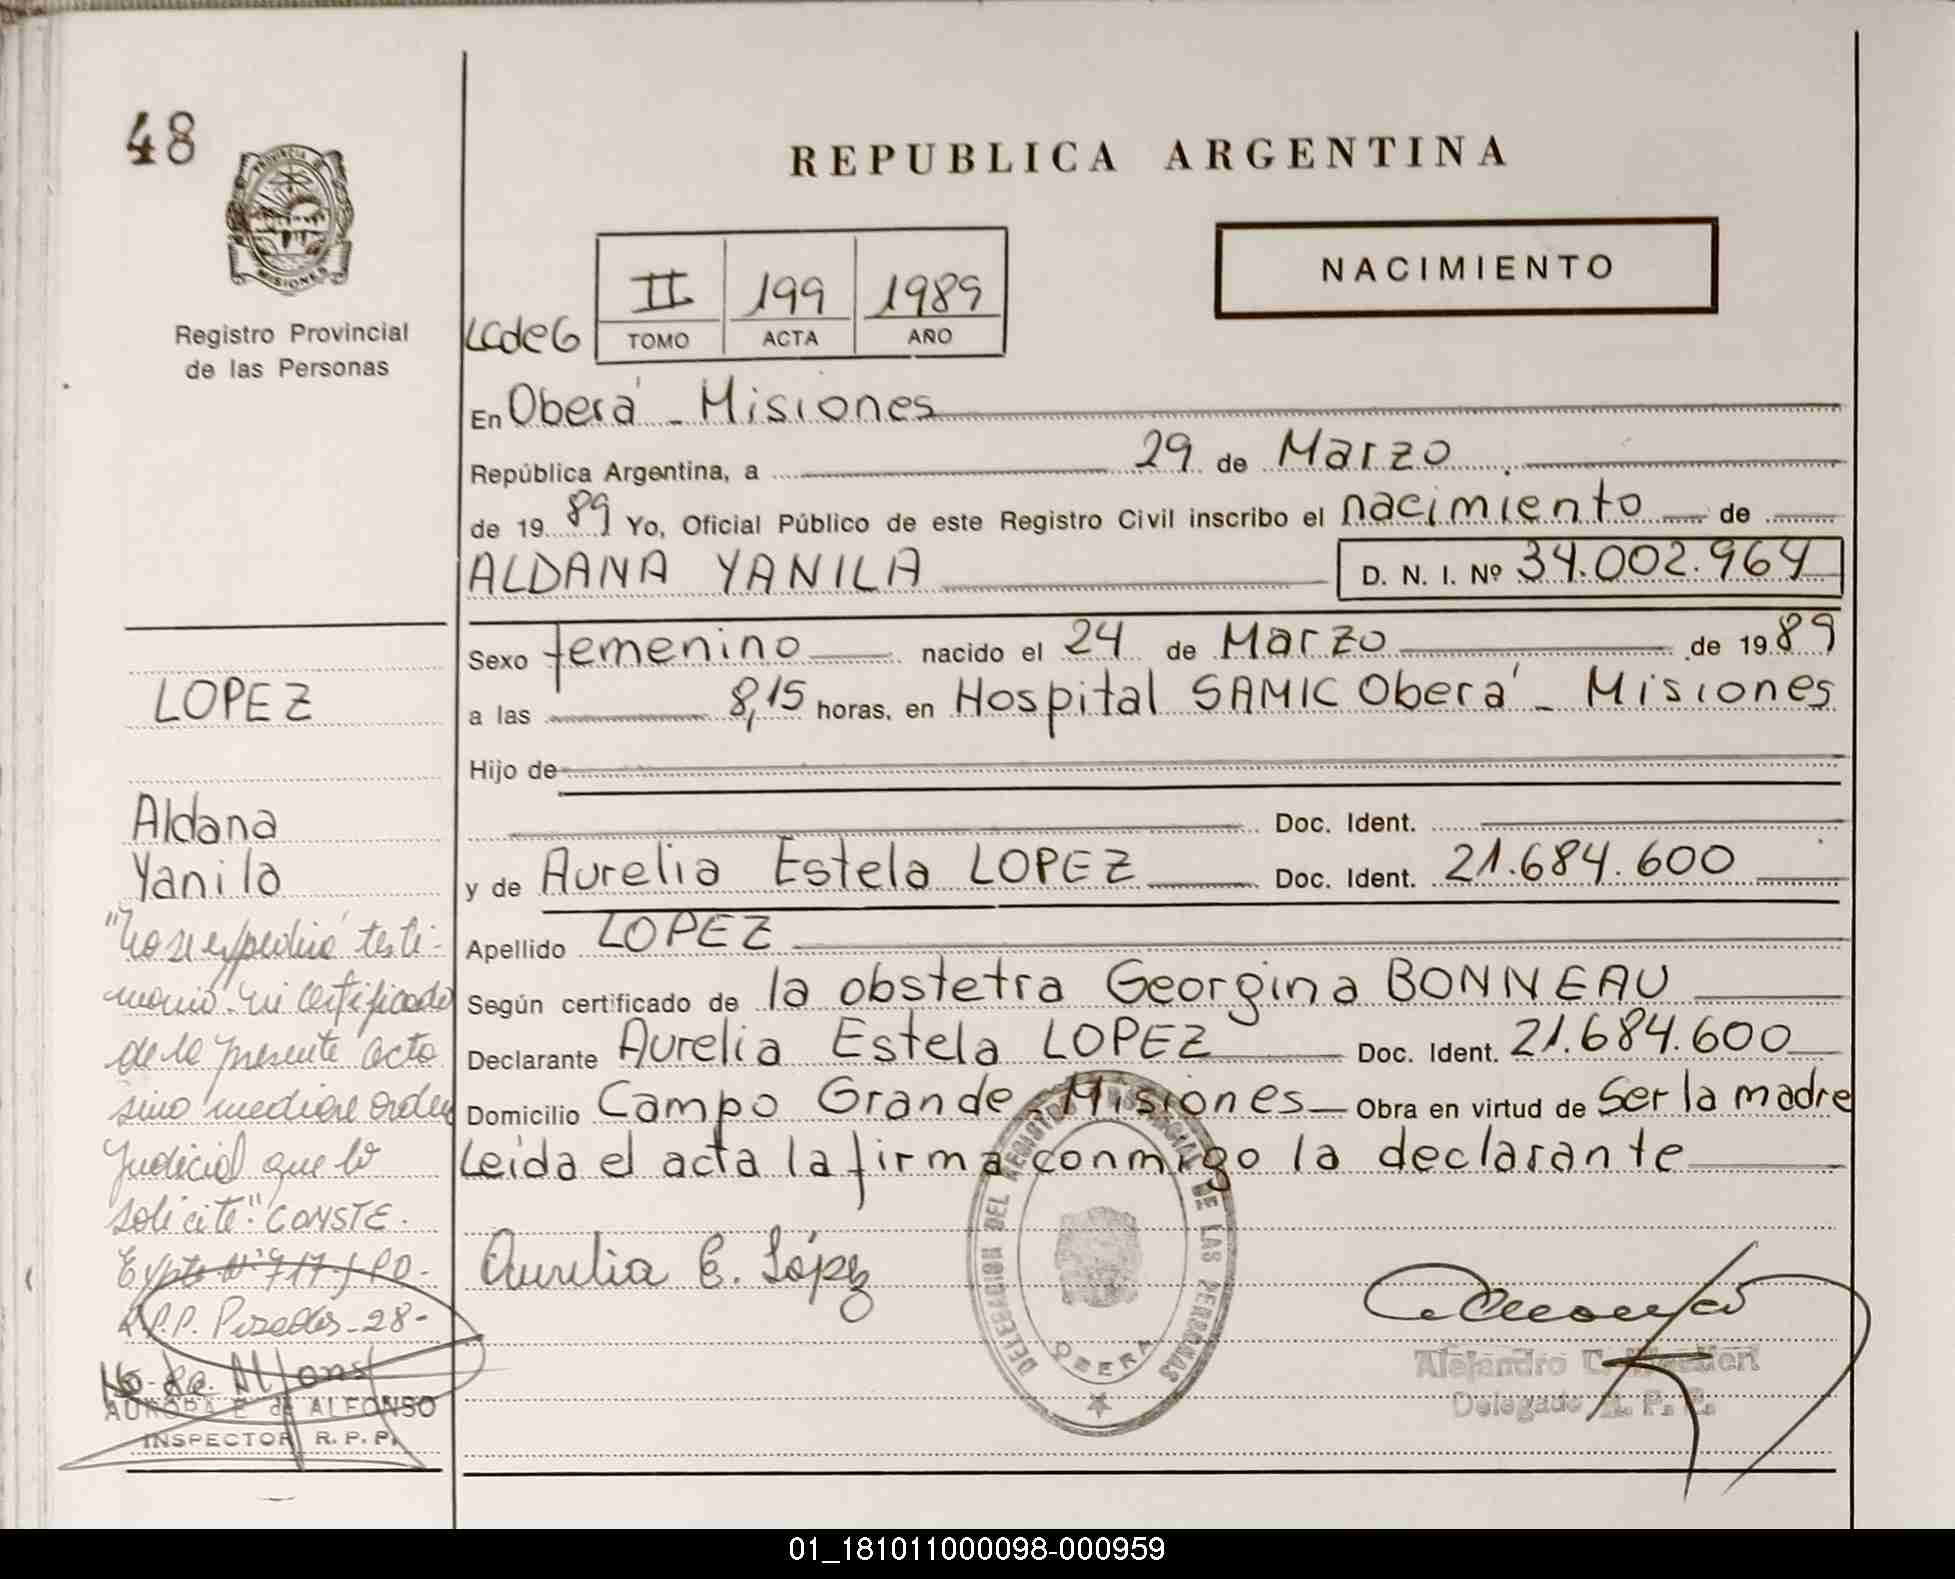 48
PROVINCIA DE
MISIONES
Registro Provincial
de las Personas
REPUBLICA ARGENTINA
NACIMIENTO
LCdeG
II 199 1989
TOMO ACTA AÑO
En Oberá - Misiones
República Argentina, a 29 de Marzo
de 19 89 Yo, Oficial Público de este Registro Civil inscribo el nacimiento de
ALDANA YANILA D. N. I. Nº 34.002.964
Sexo femenino nacido el 24 de Marzo de 19 89
a las 8,15 horas, en Hospital SAMIC Oberá - Misiones
Hijo de
Doc. Ident.
y de Aurelia Estela LOPEZ Doc. Ident. 21.684.600
Apellido LOPEZ
Según certificado de la obstetra Georgina BONNEAU
Declarante Aurelia Estela LOPEZ Doc. Ident. 21.684.600
Domicilio Campo Grande - Misiones Obra en virtud de Ser la madre
Leída el acta la firma conmigo la declarante
Aurelia E. López
DELEGACION DEL REGISTRO PROVINCIAL DE LAS PERSONAS
OBERA
Alejandro
Delegado R. P. P.
LOPEZ
Aldana
Yanila
"No se expedirá testi-
monio ni certificado
de la presente acta
sino mediare orden
Judicial que lo
solicite" CONSTE.
Expte Nº 717
R.P.P. Posadas - 28-
de Alfonso
AURORA E de ALFONSO
INSPECTOR R. P. P.
01_181011000098-000959